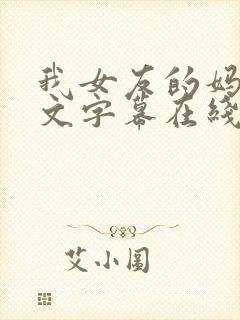 我女友的妈
文字幕在线
艾小图